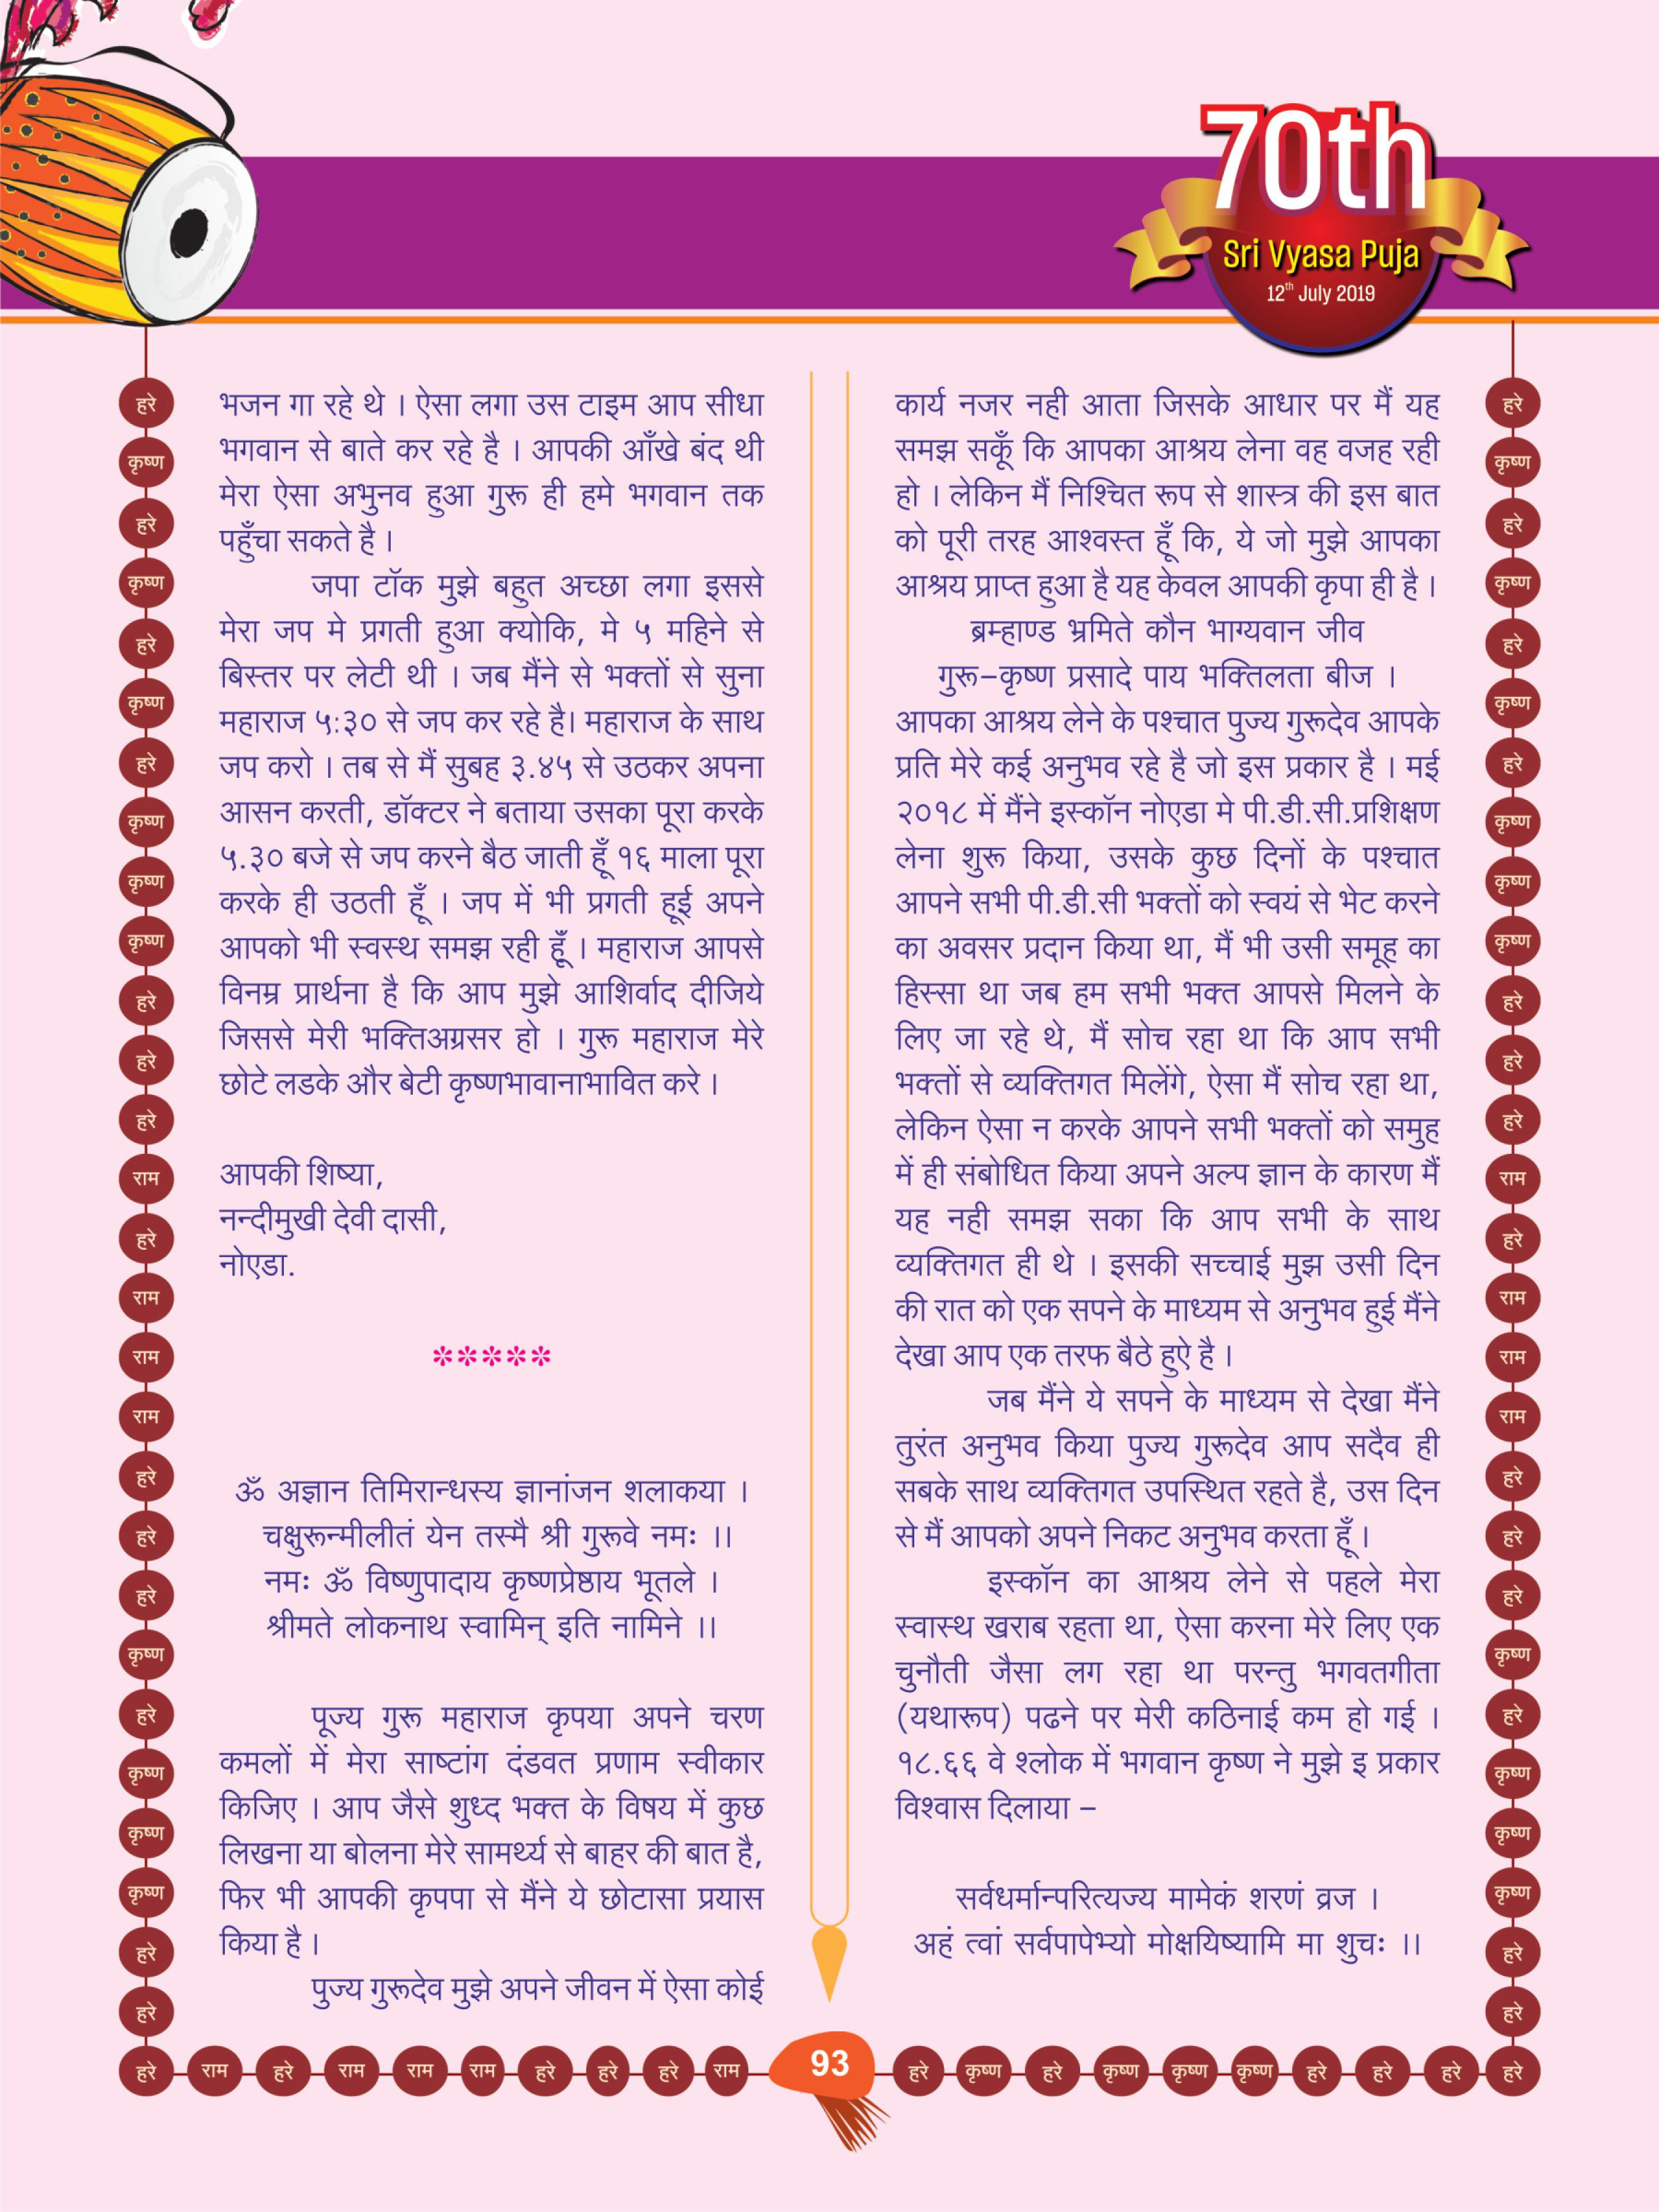 70th
Sri Vyasa Puja
12th July 2019
भजन गा रहे थे । ऐसा लगा उस टाइम आप सीधा
भगवान से बाते कर रहे है । आपकी आँखे बंद थी
मेरा ऐसा अभुनव हुआ गुरू ही हमे भगवान तक
पहुँचा सकते है ।
जपा टॉक मुझे बहुत अच्छा लगा इससे
मेरा जप मे प्रगती हुआ क्योकि, मे ५ महिने से
बिस्तर पर लेटी थी । जब मैंने से भक्तों से सुना
महाराज ५:३० से जप कर रहे है। महाराज के साथ
जप करो । तब से मैं सुबह ३.४५ से उठकर अपना
आसन करती, डॉक्टर ने बताया उसका पूरा करके
५.३० बजे से जप करने बैठ जाती हूँ १६ माला पूरा
करके ही उठती हूँ । जप में भी प्रगती हूई अपने
आपको भी स्वस्थ समझ रही हूँ । महाराज आपसे
विनम्र प्रार्थना है कि आप मुझे आशिर्वाद दीजिये
जिससे मेरी भक्तिअग्रसर हो । गुरू महाराज मेरे
छोटे लडके और बेटी कृष्णभावानाभावित करे ।
आपकी शिष्या,
नन्दीमुखी देवी दासी,
नोएडा.
*****
ॐ अज्ञान तिमिरान्धस्य ज्ञानांजन शलाकया ।
चक्षुरून्मीलीतं येन तस्मै श्री गुरूवे नमः ।।
नमः ॐ विष्णुपादाय कृष्णप्रेष्ठाय भूतले ।
श्रीमते लोकनाथ स्वामिन् इति नामिने ।।
पूज्य गुरू महाराज कृपया अपने चरण
कमलों में मेरा साष्टांग दंडवत प्रणाम स्वीकार
किजिए । आप जैसे शुध्द भक्त के विषय में कुछ
लिखना या बोलना मेरे सामर्थ्य से बाहर की बात है,
फिर भी आपकी कृपपा से मैंने ये छोटासा प्रयास
किया है ।
पुज्य गुरूदेव मुझे अपने जीवन में ऐसा कोई
कार्य नजर नही आता जिसके आधार पर मैं यह
समझ सकूँ कि आपका आश्रय लेना वह वजह रही
हो । लेकिन मैं निश्चित रूप से शास्त्र की इस बात
को पूरी तरह आश्वस्त हूँ कि, ये जो मुझे आपका
आश्रय प्राप्त हुआ है यह केवल आपकी कृपा ही है ।
ब्रम्हाण्ड भ्रमिते कौन भाग्यवान जीव
गुरू–कृष्ण प्रसादे पाय भक्तिलता बीज ।
आपका आश्रय लेने के पश्चात पुज्य गुरूदेव आपके
प्रति मेरे कई अनुभव रहे है जो इस प्रकार है । मई
२०१८ में मैंने इस्कॉन नोएडा मे पी.डी.सी.प्रशिक्षण
लेना शुरू किया, उसके कुछ दिनों के पश्चात
आपने सभी पी.डी.सी भक्तों को स्वयं से भेट करने
का अवसर प्रदान किया था, मैं भी उसी समूह का
हिस्सा था जब हम सभी भक्त आपसे मिलने के
लिए जा रहे थे, मैं सोच रहा था कि आप सभी
भक्तों से व्यक्तिगत मिलेंगे, ऐसा मैं सोच रहा था,
लेकिन ऐसा न करके आपने सभी भक्तों को समुह
में ही संबोधित किया अपने अल्प ज्ञान के कारण मैं
यह नही समझ सका कि आप सभी के साथ
व्यक्तिगत ही थे । इसकी सच्चाई मुझ उसी दिन
की रात को एक सपने के माध्यम से अनुभव हुई मैंने
देखा आप एक तरफ बैठे हुऐ है ।
जब मैंने ये सपने के माध्यम से देखा मैंने
तुरंत अनुभव किया पुज्य गुरूदेव आप सदैव ही
सबके साथ व्यक्तिगत उपस्थित रहते है, उस दिन
से मैं आपको अपने निकट अनुभव करता हूँ ।
इस्कॉन का आश्रय लेने से पहले मेरा
स्वास्थ खराब रहता था, ऐसा करना मेरे लिए एक
चुनौती जैसा लग रहा था परन्तु भगवतगीता
(यथारूप) पढने पर मेरी कठिनाई कम हो गई ।
१८.६६ वे श्लोक में भगवान कृष्ण ने मुझे इ प्रकार
विश्वास दिलाया –
सर्वधर्मान्परित्यज्य मामेकं शरणं व्रज ।
अहं त्वां सर्वपापेभ्यो मोक्षयिष्यामि मा शुचः ।।
हरे
कृष्ण
हरे
कृष्ण
हरे
कृष्ण
हरे
कृष्ण
कृष्ण
कृष्ण
हरे
हरे
हरे
राम
हरे
राम
राम
राम
हरे
हरे
हरे
कृष्ण
हरे
कृष्ण
कृष्ण
कृष्ण
हरे
हरे
हरे
कृष्ण
हरे
कृष्ण
हरे
कृष्ण
हरे
कृष्ण
कृष्ण
कृष्ण
हरे
हरे
हरे
राम
हरे
राम
राम
राम
हरे
हरे
हरे
कृष्ण
हरे
कृष्ण
कृष्ण
कृष्ण
हरे
हरे
हरे राम हरे राम राम राम हरे हरे हरे राम 93 हरे कृष्ण हरे कृष्ण कृष्ण कृष्ण हरे हरे हरे हरे